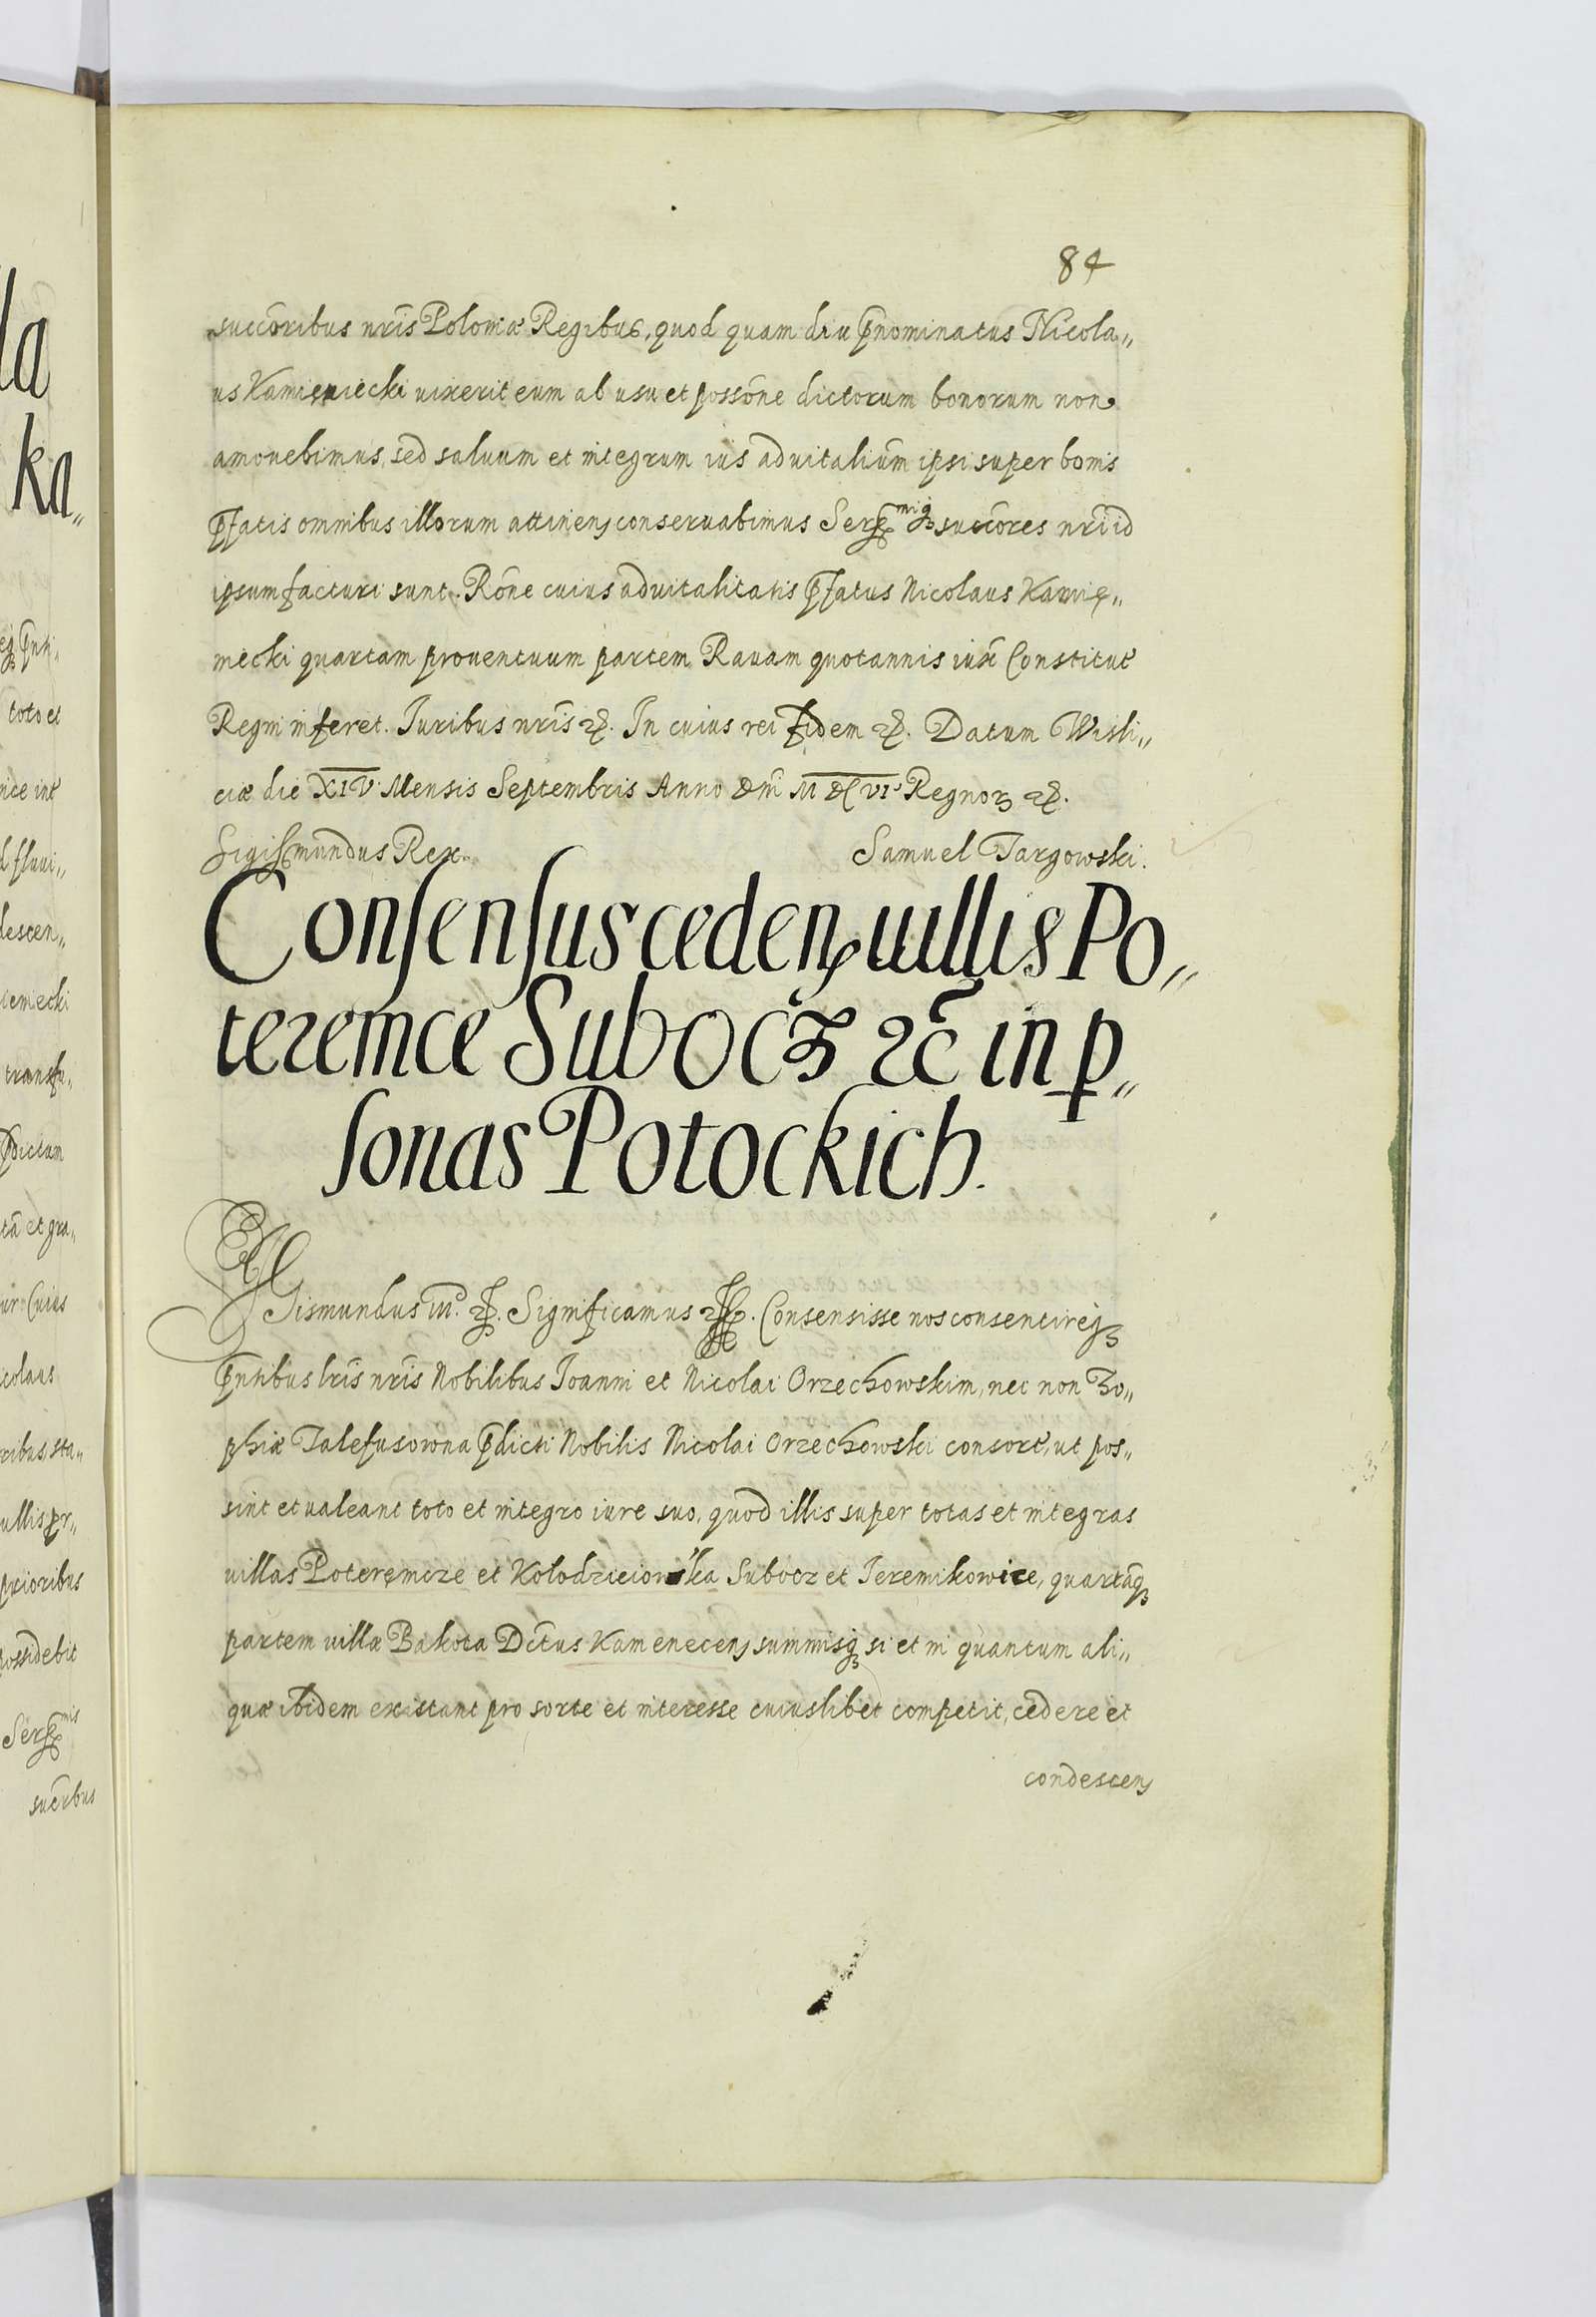 84
succoribus nris Poloniæ Regibus, quod quam diu pnominatus Nicola„
us Kamieniecki vixerit eum ab usu et possone dictorum bonorum non
amovebimus, sed saluum et integrum ius aduitalium ipsi super bonis
pfatis omnibus illorum attinen conseruabimus Sermiq succores nri id
ipsum facturi sunt. Rone cuius aduitalitatis pfatus Nicolaus Kamie„
niecki quartam prouentuum partem Rauam quotannis iux Constitut
Regni inferet. Juribus nris etc. In cuius rei fidem etc. Datum Wisli„
ciæ die XIV Mensis Septembris Anno Dni M DC VI Regnor etc.
Sigismundus Rex. Samuel Targowski.
Consensus ceden uillis Po„
teremce Subocz etc in p„
sonas Potockich.
Sigismundus III. etc. Significamus etc. Consensisse nos consentireq
pntibus lris nris Nobilibus Joanni et Nicolai Orzechowskim, nec non Zo„
phiæ Jalefusowna pdicti Nobilis Nicolai Orzechowski consort, ut pos„
sint et ualeant toto et integro iure suo, quod illis super totas et integras
uillas Poteremcze et Kolodzieiowska Subocz et Jeremikowice, quartaq
partem uillæ Bakota Dctus Kamenecen summisq si et in quantum ali„
quæ ibidem existant pro sorte et interesse cuiuslibet competit, cedere et
condescen